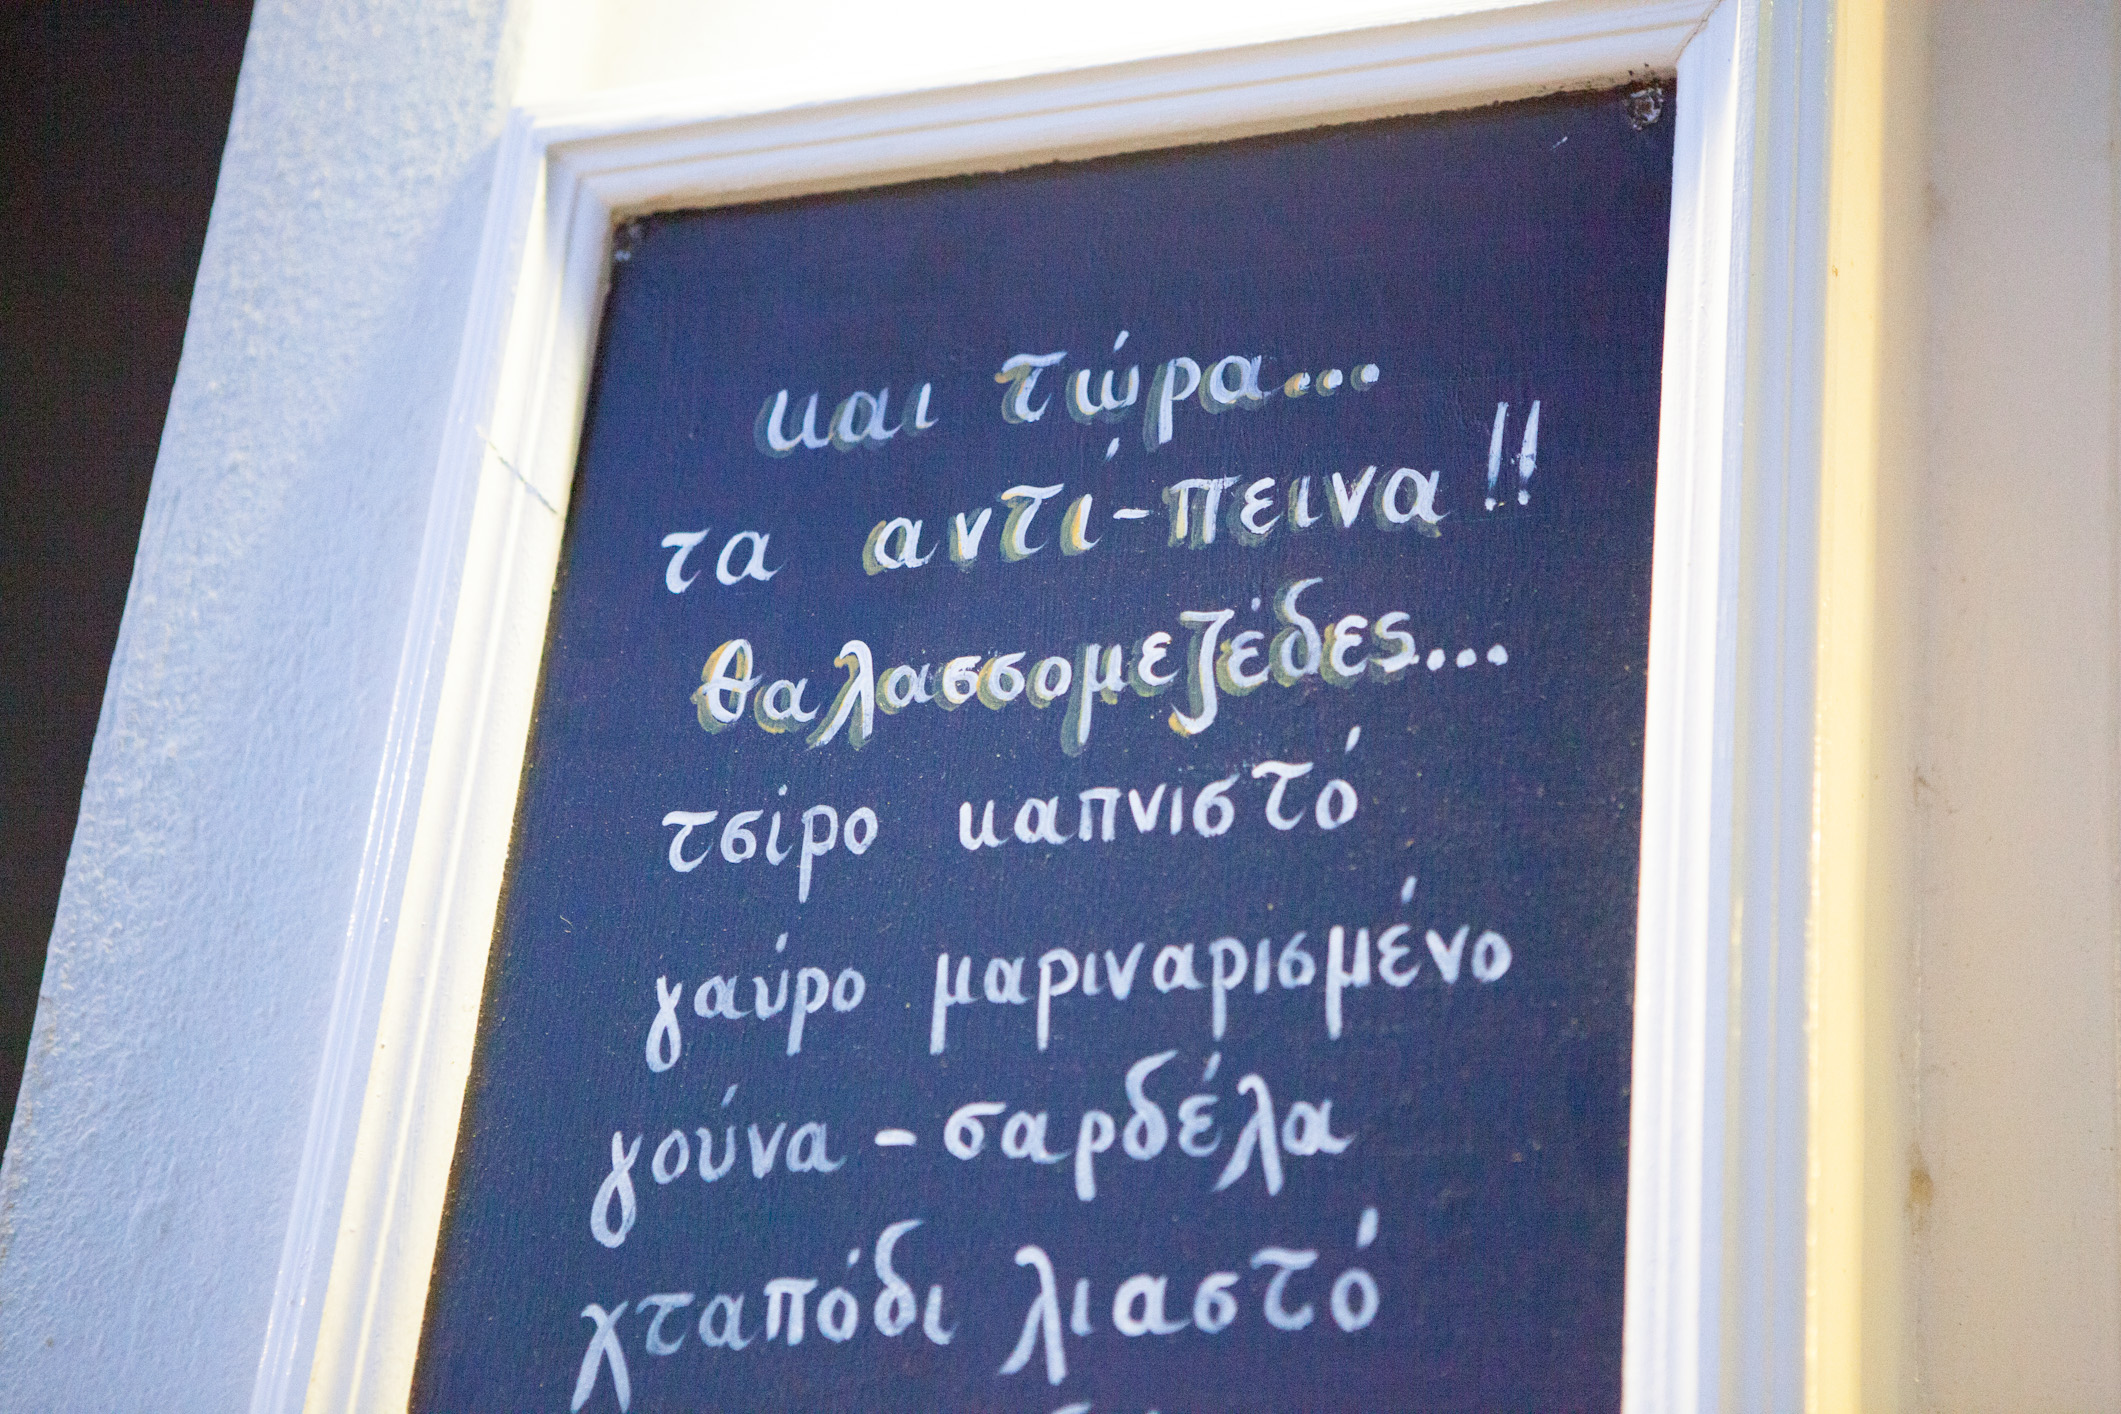 και τώρα...
τα αντί-πεινα!!
θαλασσομεζέδες...
τσίρο καπνιστό
γαύρο μαριναρισμένο
γούνα - σαρδέλα
χταπόδι λιαστό